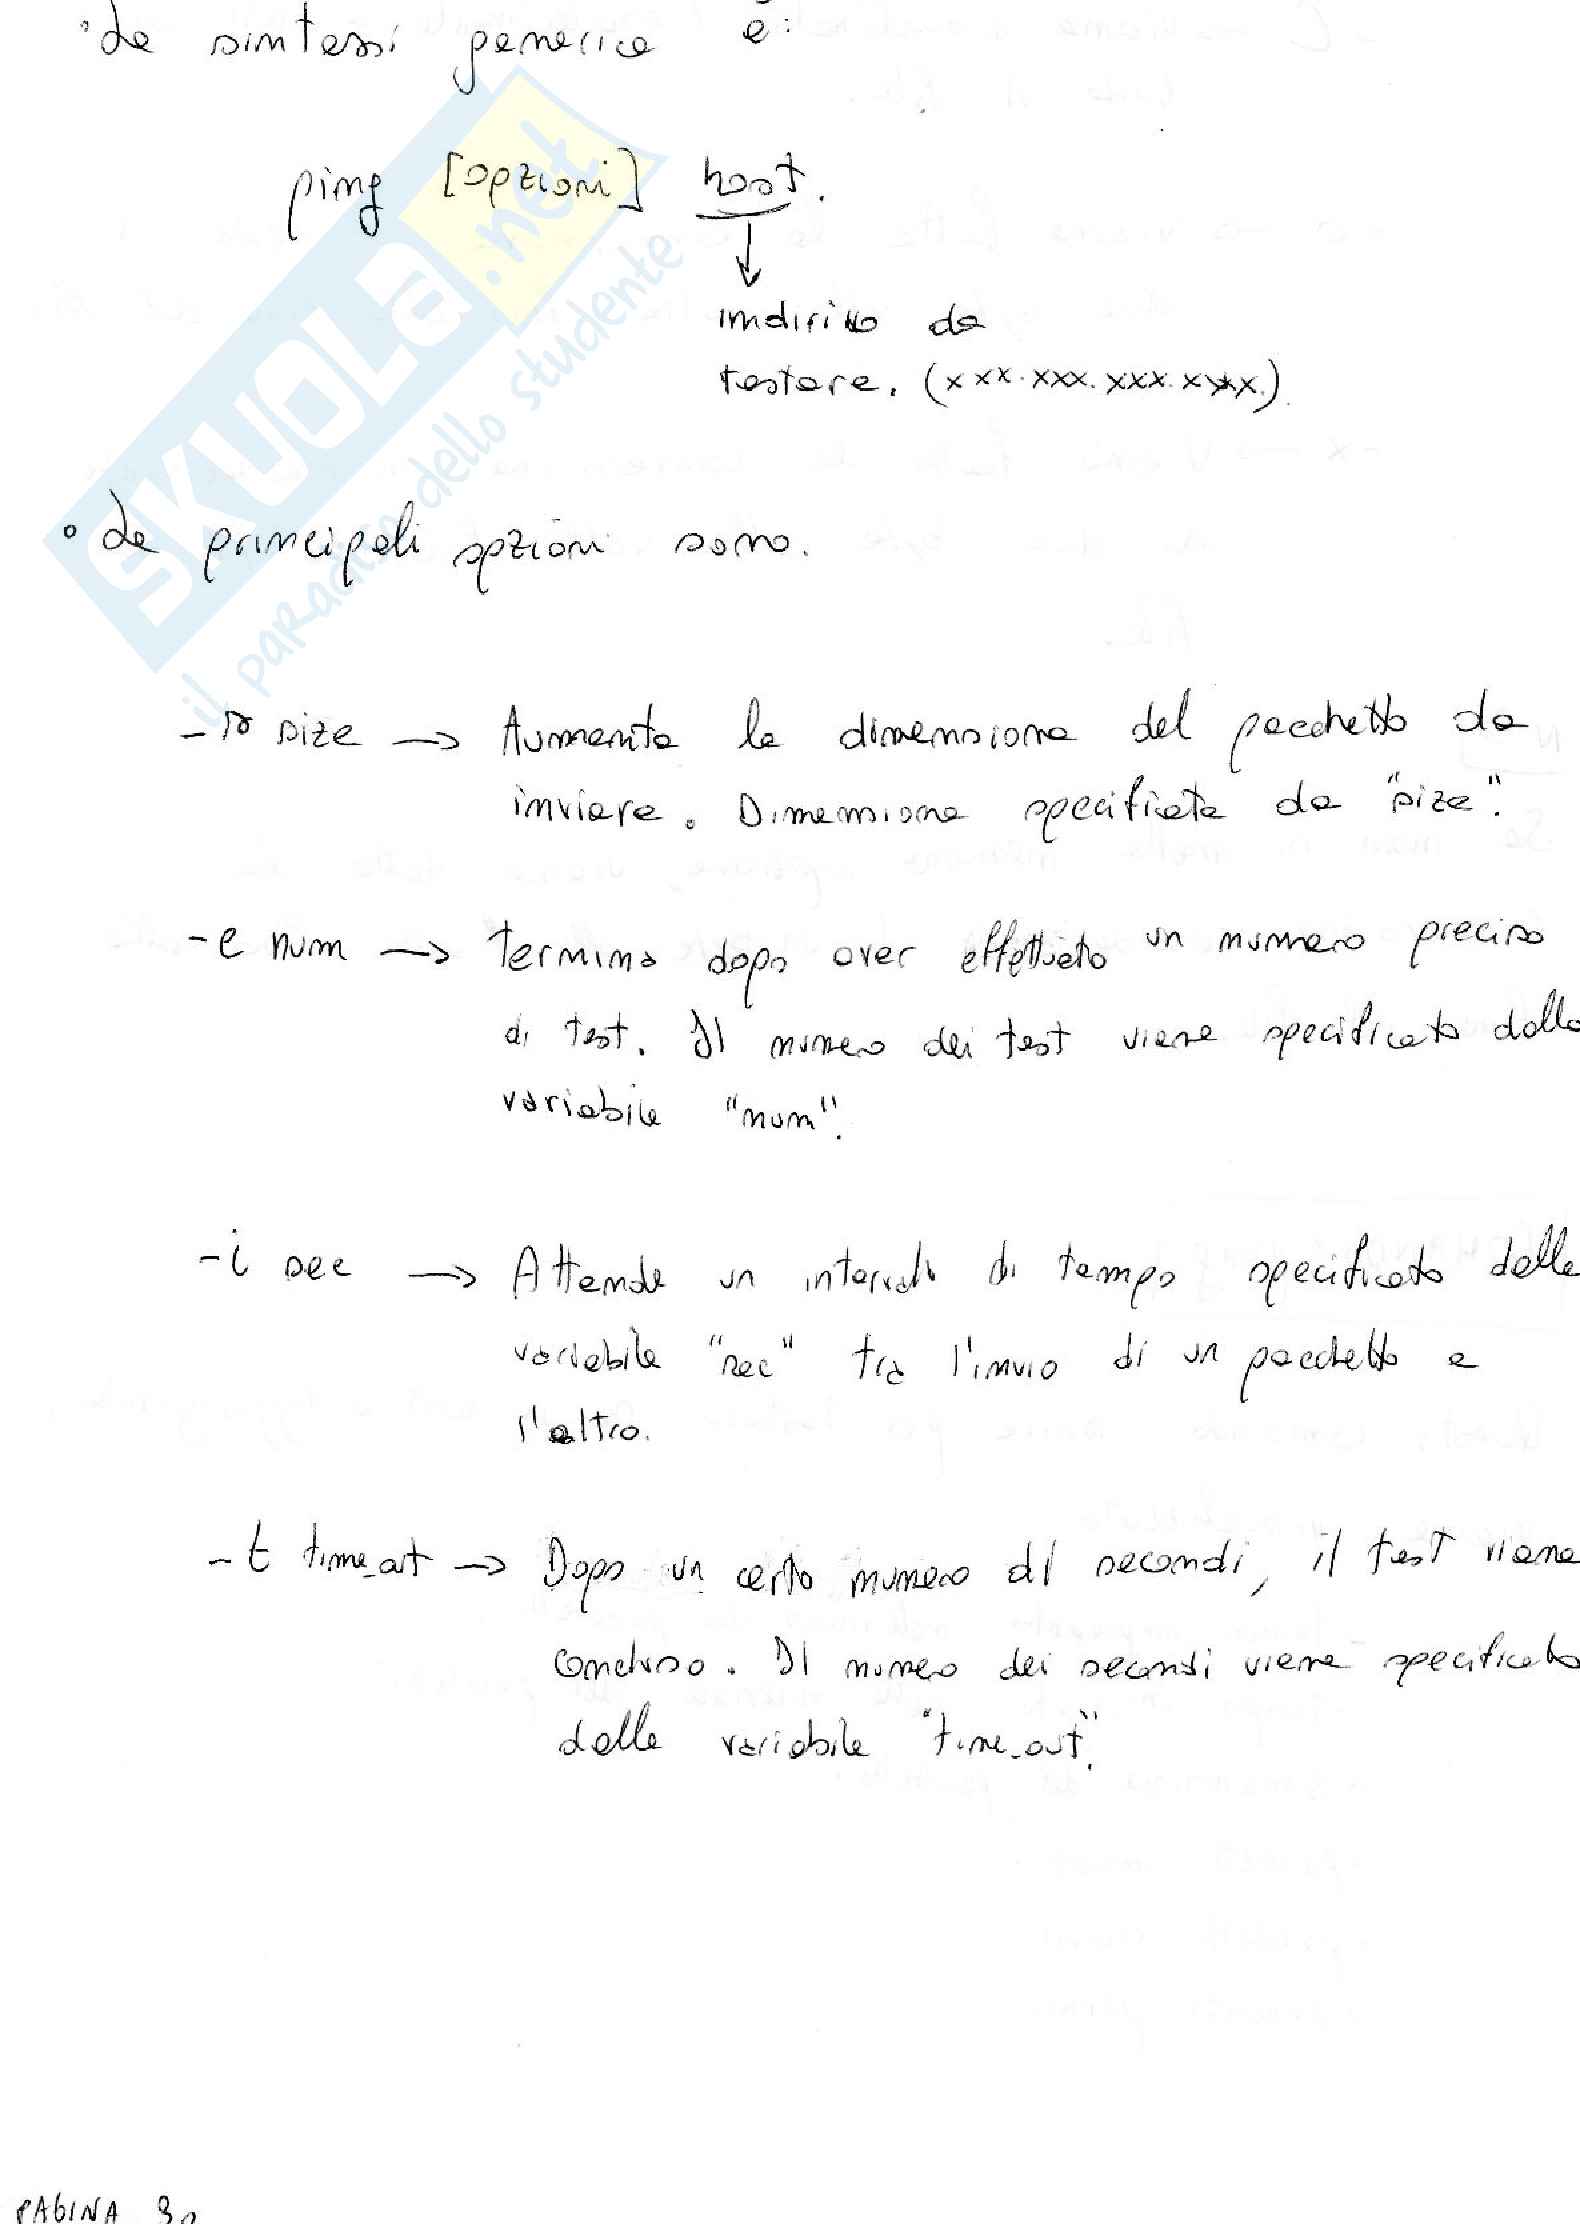 ° La sintassi generica è:
ping [opzioni] host.
indirizzo da
testare. (xxx.xxx.xxx.xxx.)
SKUOLA.net
il paradiso dello studente
° Le principali opzioni sono.
-s size → Aumenta la dimensione del pacchetto da
inviare. Dimensione specificata da "size".
-c num → Termina dopo aver effettuato un numero preciso
di test. Il numero dei test viene specificato dalla
variabile "num".
-i sec → Attende un intervallo di tempo specificato dalla
variabile "sec" tra l'invio di un pacchetto e
l'altro.
-t time_out → Dopo un certo numero di secondi, il test viene
concluso. Il numero dei secondi viene specificato
dalla variabile "time_out".
PAGINA